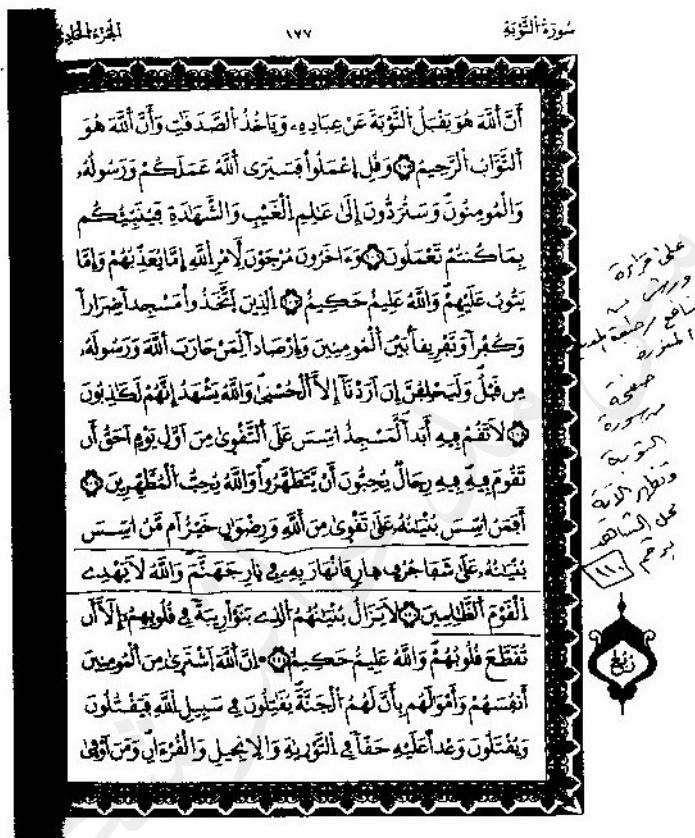 سُورَةُ التَّوْبَةِ ١٧٧ الجُزْءُ الحَادِي
أَنَّ اَللَّهَ هُوَ يَقْبَلُ اُلتَّوْبَةَ عَنْ عِبَادِهِۦ وَيَاخُذُ اُلصَّدَقَٰتِ وَأَنَّ اَللَّهَ هُوَ
اَلتَّوَّابُ اُلرَّحِيمُ وَقُلِ اِعْمَلُواْ فَسَيَرَى اَللَّهُ عَمَلَكُمْ وَرَسُولُهُۥ
وَالْمُومِنُونَ وَسَتُرَدُّونَ إِلَىٰ عَٰلِمِ اِلْغَيْبِ وَالشَّهَٰدَةِ فَيُنَبِّئُكُم
بِمَا كُنتُمْ تَعْمَلُونَ وَءَاخَرُونَ مُرْجَوْنَ لِأَمْرِ اِللَّهِ إِمَّا يُعَذِّبُهُمْ وَإِمَّا
يَتُوبُ عَلَيْهِمْ وَاللَّهُ عَلِيمٌ حَكِيمٌ اَلذِينَ اَتَّخَذُواْ مَسْجِداً ضِرَاراً
وَكُفْراً وَتَفْرِيقاً بَيْنَ اَلْمُومِنِينَ وَإِرْصَاداً لِّمَنْ حَارَبَ اَللَّهَ وَرَسُولَهُۥ
مِن قَبْلُ وَلَيَحْلِفُنَّ إِنَ اَرَدْنَآ إِلَّا اَلْحُسْنَىٰ وَاللَّهُ يَشْهَدُ إِنَّهُمْ لَكَٰذِبُونَ
لَا تَقُمْ فِيهِ أَبَداً لَّمَسْجِدٌ اُسِّسَ عَلَى اَلتَّقْوَىٰ مِنَ اَوَّلِ يَوْمٍ اَحَقُّ أَن
تَقُومَ فِيهِ فِيهِ رِجَالٌ يُحِبُّونَ أَنْ يَّتَطَهَّرُواْ وَاللَّهُ يُحِبُّ اُلْمُطَّهِّرِينَ
أَفَمَنُ اسِّسَ بُنْيَٰنُهُۥ عَلَىٰ تَقْوَىٰ مِنَ اَللَّهِ وَرِضْوَٰنٍ خَيْرٌ اَم مَّنُ اسِّسَ
بُنْيَٰنُهُۥ عَلَىٰ شَفَا جُرُفٍ هارٍ فَانْهَارَ بِهِۦ فِي نَارِ جَهَنَّمَ وَاللَّهُ لَا يَهْدِے
اِلْقَوْمَ اَلظَّٰلِمِينَ لَا يَزَالُ بُنْيَٰنُهُمُ اُلذِے بَنَوْاْ رِيبَةً فِي قُلُوبِهِمُۥ إِلَّا أَن
تُقَطَّعَ قُلُوبُهُمْ وَاللَّهُ عَلِيمٌ حَكِيمٌ إِنَّ اَللَّهَ اَشْتَرَىٰ مِنَ اَلْمُومِنِينَ
أَنفُسَهُمْ وَأَمْوَٰلَهُم بِأَنَّ لَهُمُ اُلْجَنَّةَ يُقَٰتِلُونَ فِي سَبِيلِ اِللَّهِ فَيَقْتُلُونَ
وَيُقْتَلُونَ وَعْداً عَلَيْهِ حَقّاً فِي اِلتَّوْرَىٰةِ وَالِانجِيلِ وَالْقُرْءَانِ وَمَنَ اَوْفَىٰ
على قراءة
ورش عن
نافع طبعة المدينة
المنورة
صفحة
سورة
التوبة
وتظهر الآية
محل الشاهد
برقم
١١٠
رُبُع